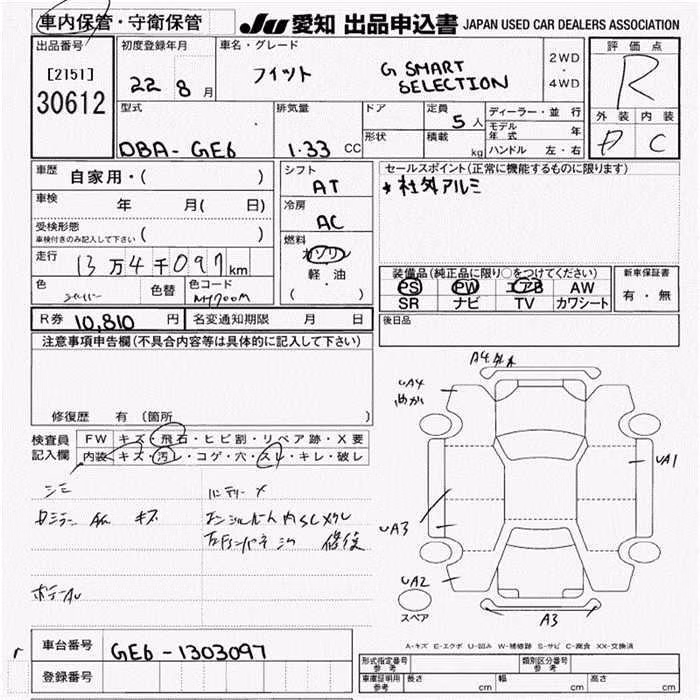 車内保管・守衛保管
JU 愛知 出品申込書 JAPAN USED CAR DEALERS ASSOCIATION
出品番号
[2151]
30612
初度登録年月
22 8 月
車名・グレード
フィット G SMART SELECTION
2WD
・
4WD
評価点
R
外装 内装
D C
型式
DBA-GE6
排気量
1.33 CC
ドア
形状
定員
5 人
積載
kg
ディーラー・並行
モデル年式 年
ハンドル 左・右
車歴
自家用・( )
車検
年 月( 日)
受検形態
車検付きのみ記入して下さい ( )
走行
13万4千097km
色
シルバー
色替
色コード
NH700M
シフト
AT
冷房
AC
燃料
ガソリン
軽・油
( )
セールスポイント(正常に機能するものに限ります)
*社外アルミ
装備品(純正品に限り○をつけてください)
PS PW エアB AW
SR ナビ TV カワシート
新車保証書
有・無
R券 10,810 円 名変通知期限 月 日
後日品
注意事項申告欄(不具合内容等は具体的に記入して下さい)
修復歴 有(箇所 )
検査員記入欄
FW キズ・飛石・ヒビ割・リペア跡・X要
内装 キズ・汚レ・コゲ・穴・スレ・キレ・破レ
シミ
バッテリーメ
キズ
修復
A4
UA4
UA1
UA3
UA2
A3
スペア
A-キズ E-エクボ U-凹み W-補修跡 S-サビ C-腐食 XX-交換済
車台番号 GE6-1303097
登録番号
形式指定番号 参考
類別区分番号 参考
車庫証明用 参考
長さ cm 幅 cm 高さ cm